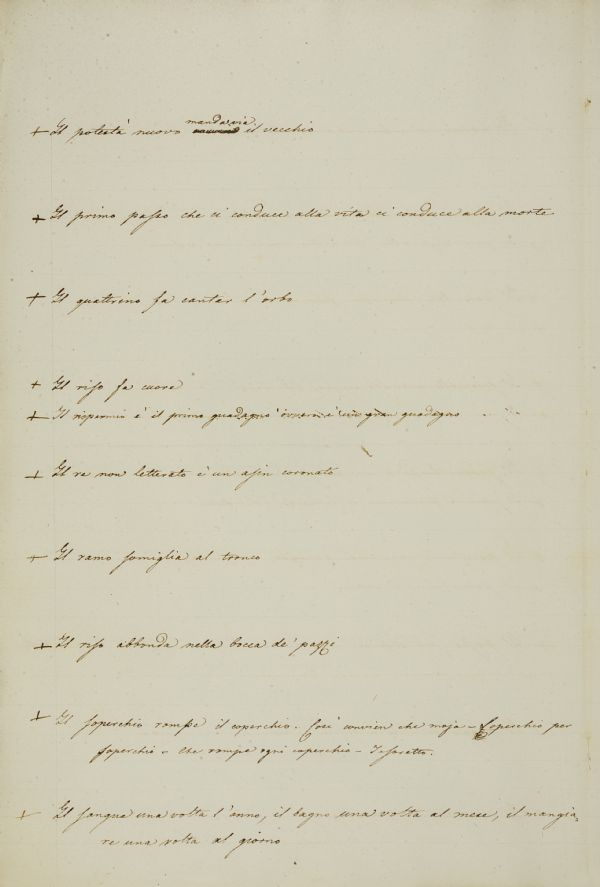 + Il potestà nuovo manda via il vecchio
+ Il primo passo che ci conduce alla vita ci conduce alla morte
+ Il quattrino fa cantar l'orbo
+ Il riso fa cuore
+ Il risparmio è il primo guadagno ovvero è un gran guadagno
+ Il re non letterato è un asin coronato
+ Il ramo somiglia al tronco
+ Il riso abbonda nella bocca de' pazzi
+ Il soperchio rompe il coperchio. Così convien che muoja - Soperchio per
soperchio - che rompe ogni coperchio -
+ Il sangue una volta l'anno, il bagno una volta al mese, il mangia,
re una volta al giorno